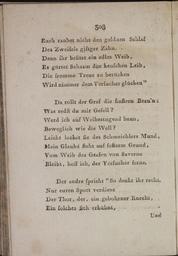 508
Euch raubet nicht den goldnen Schlaf
Des Zweifels giftger Zahn.
Denn ihr besitzt ein edles Weib,
Es gürtet Scham den keuschen Leib,
Die fromme Treue zu berücken
Wird nimmer dem Versucher glücken"
Da rollt der Graf die finstern Brau'n:
Was redst du mir Gesell?
Werd ich auf Weibestugend baun,
Beweglich wie die Well?
Leicht locket sie des Schmeichlers Mund,
Mein Glaube steht auf festerm Grund,
Vom Weib des Grafen von Saverne
Bleibt, hoff ich, der Versucher ferne.
Der andre spricht "So denkt ihr recht.
Nur euren Spott verdient
Der Thor, der, ein gebohrner Knecht,
Ein solches sich erkühnt,
Und